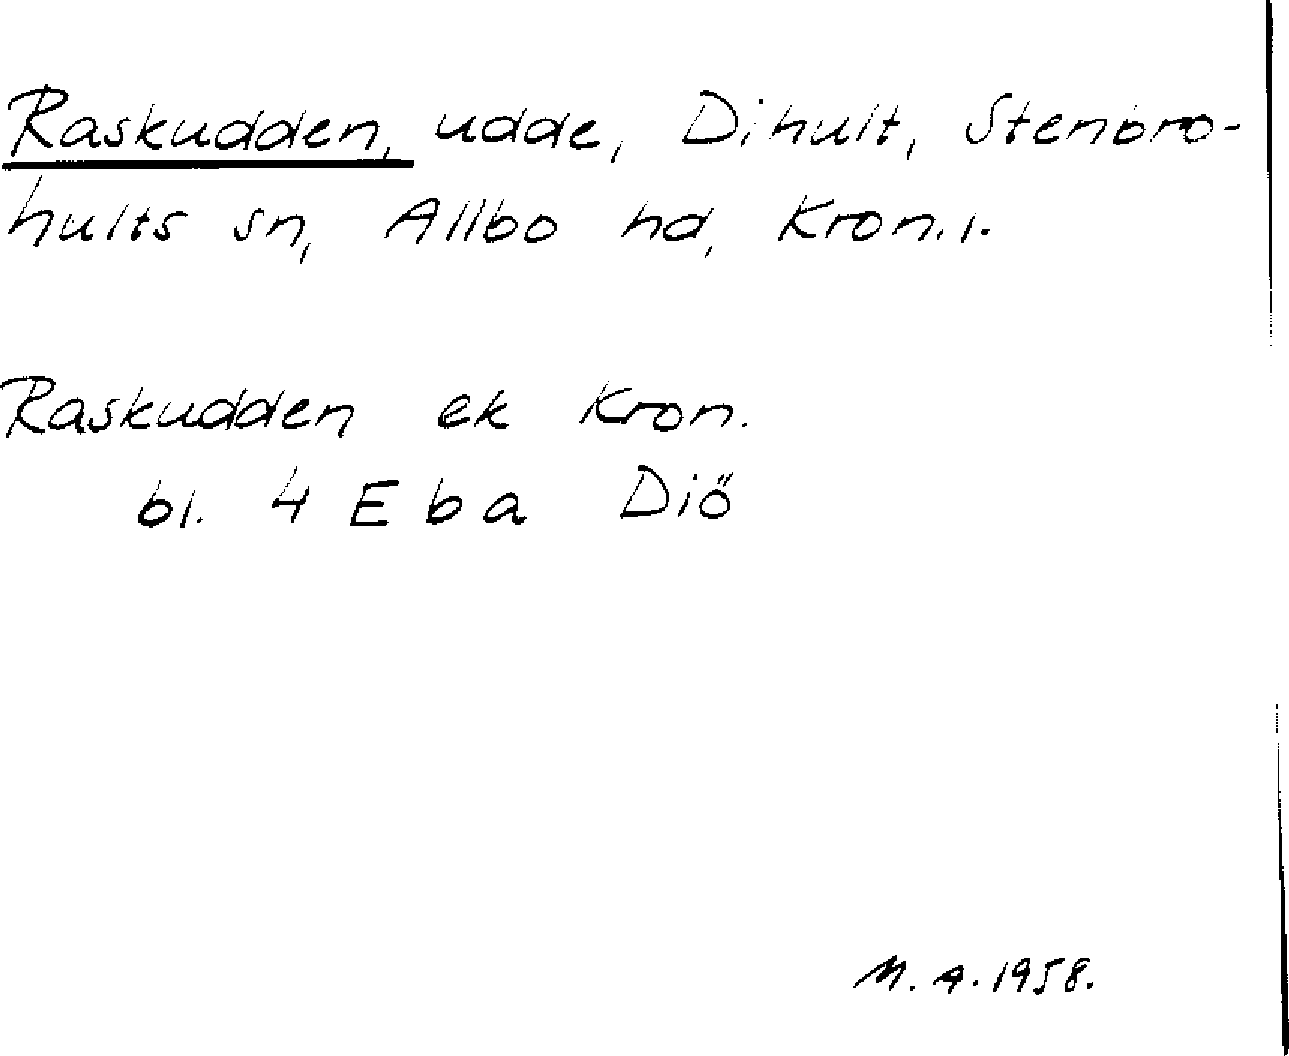 Raskudden, udde, Dihult, Stenbro-
hults sn, Allbo hd, Kron.l.
Raskudden ek Kron.
bl. 4 E b a Diö
M. A. 1958.